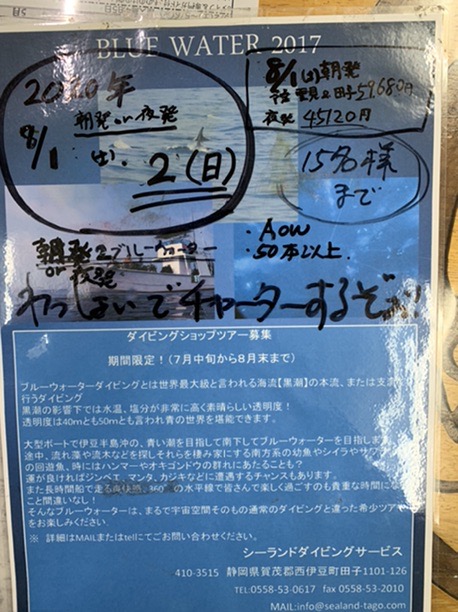 BLUE WATER 2017
2020年
朝発or夜発
8/1(土).2(日)
8/1(土)朝発
田子59,680円
夜発 45120円
15名様
まで
・AOW
・50本以上.
朝発 ブルーウォーター
or
夜発
わっしょいでチャーターするぞ
ダイビングショップツアー募集
期間限定！（7月中旬から8月末まで）
ブルーウォーターダイビングとは世界最大級と言われる海流【黒潮】の本流、または支流
行うダイビング
黒潮の影響下では水温、塩分が非常に高く素晴らしい透明度！
透明度は40mとも50mとも言われ青の世界を堪能できます。
大型ボートで伊豆半島沖の、青い潮を目指して南下してブルーウォーターを目指しま
途中、流れ藻や流木などを探しそれらを棲み家にする南方系の幼魚やシイラやサワ
の回遊魚、時にはハンマーやオキゴンドウの群れにあたることも？
運が良ければジンベエ、マンタ、カジキなどに遭遇するチャンスもあります。
また長時間船で走る爽快感、360°の水平線で皆さんで楽しく過ごすのも貴重な時間にな
こと間違いなし！
そんなブルーウォーターは、まるで宇宙空間そのもの通常のダイビングと違った希少ツアー
をお楽しみください
※ 詳細はMAILまたはtelにてご問い合わせください。
シーランドダイビングサービス
410-3515 静岡県賀茂郡西伊豆町田子1101-126
TEL:0558-53-0617 fax 0558-53-2010
MAIL:info@sealand-tago.com